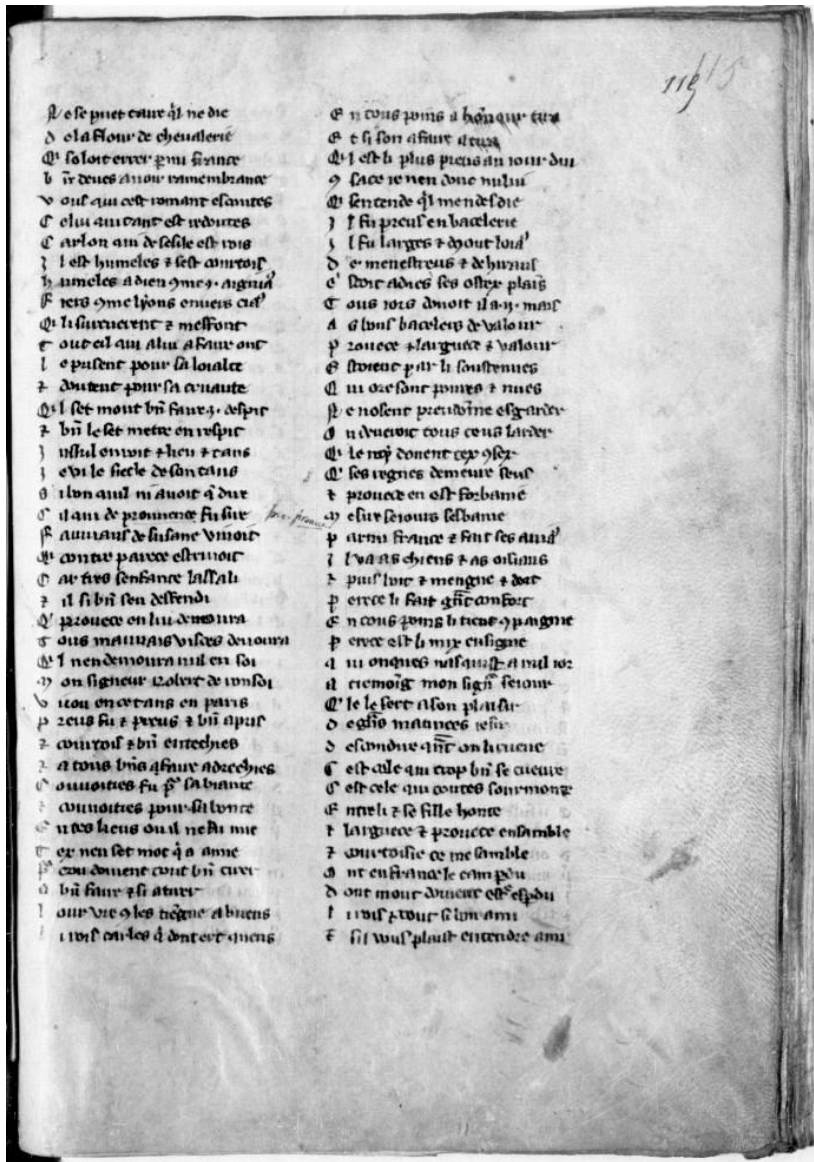 115
N e se puet taire q'l ne die
D e la flour de cheualerie
Q' soloit errer p mi france
B n deues auoir ramembrance
V ous qui cest romant escoutes
C elui qui tant est redoutes
C arlon qui de sesile est rois
I l est humeles & sest courtois
h umeles a dieu 9me .j. aigniax
F iers 9me lyons enuers ciax
Q' li sieruierent & meffont
T out cil qui a lui a faire ont
L e prisent pour sa loialte
& doutent pour sa cruaute
Q' l set mout bn faire .j. despit
& bn le set metre en respit
I usqu'il en voit & lieu & tans
I e vi le siecle de son tans
S i bon quil ni auoit q' dire
C il qui de prouuence fu sire
F auuians de susane viuoit
Q' contre parece estriuoit
C ar tres senfance lassali
& il si bn sen deffendi
Q' prouece en lui demoura
T ous mauuais visces deuoura
Q' l nen demoura nul en soi
M on signeur Robert de ronsoi
V i iou en ce tans en paris
P reus fu & preus & bn apris
& courtois & bn entechies
& a tous bns a faire adrechies
C ouuoities fu p' sa biaute
& couuoities pour sa bonte
E n tes lieus ou il ne fu mie
T ex neu set mot q' a amie
P' cou doiuent tout bn tirer
A bn faire & si atirer
L our vie 9 les tiegne a buens
L i rois carles q' dont ert quens
E n tous poins a honour
E t si son afaire
Q' l est li plus preus au iour dui
9 sace ie nen douc nului
Q' sentende q'l men desdie
I l fu preus en bacelerie
I l fu larges & dout
D e menestreus & de hiraus
E stoit ades ses ostex plais
T ous iors donoit il a .ij. mais
A s bons bacelers de valour
P rouece & larguece & valour
E stoient par li soustenues
Q ui ore sont poures & nues
N e nosent preudome esgarder
O n deueroit tous ceus larder
Q' le roy donent tex 9ser
Q' ses regnes demeure seus
& prouece en est forbanie
M esire seiours sesbanie
P armi france & fait ses auiax
I l va as chiens & as oisiaus
& puis boit & mengue & dort
P erece li fait gnt confort
E n tous poins li tient 9paignie
P erece est li mix ensigne
Q ui onques nasquist a nul ior
A tiemoig mon sign' seiour
Q' le le sert a son plaisir
D eghns matinces iesir
D escondire qnt on li rueue
C est cele qui trop bn se cueure
C est cele qui toutes sourmonte
E ntre li & se fille honte
& larguece & prouece ensamble
& courtoisie ce me samble
O nt en france le camp du
D ont mout doucur est espdu
L i rois & tout si bon ami
& sil vous plaist entendre a mi